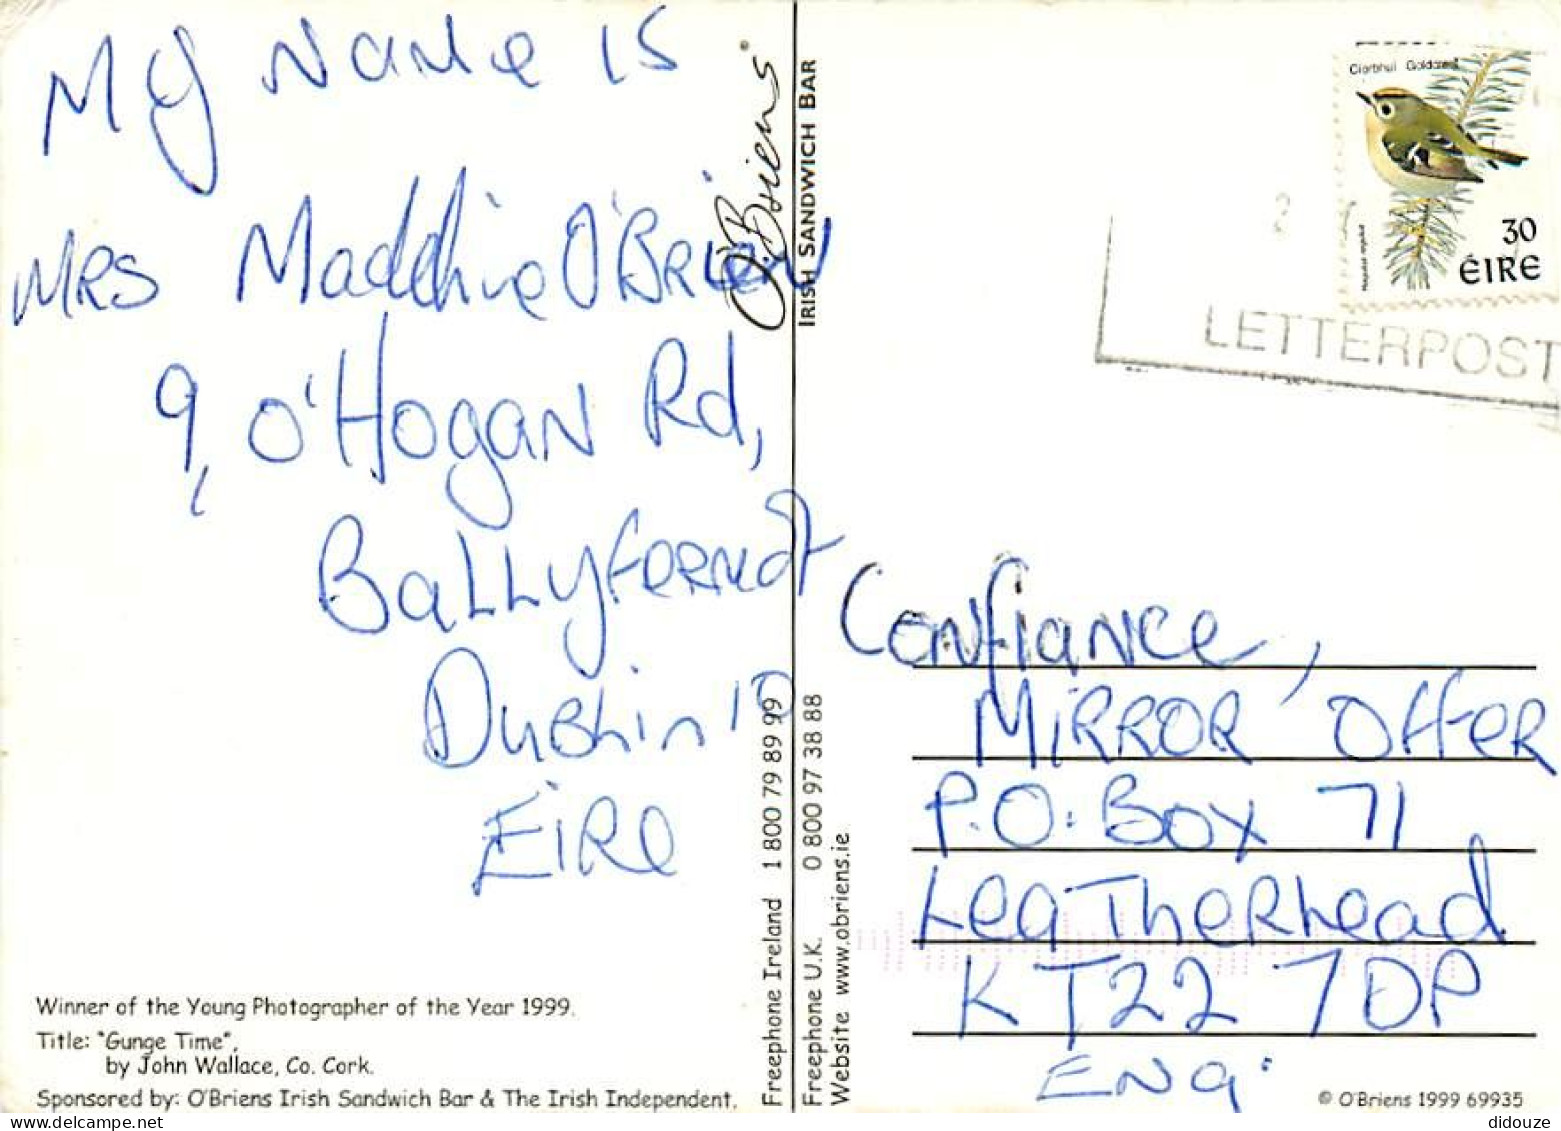 My Name is
Mrs Maddhine O'Brien
9, O'Hogan Rd,
Ballyfermot
Dublin 10
Eire
Winner of the Young Photographer of the Year 1999.
Title: "Gunge Time",
by John Wallace, Co. Cork.
Sponsored by: O'Briens Irish Sandwich Bar & The Irish Independent.
O'Briens
IRISH SANDWICH BAR
Freephone Ireland 1 800 79 89 99
Freephone U.K. 0 800 97 38 88
Website www.obriens.ie
Ciorbhuí Goldcrest
30
ÉIRE
LETTERPOST
Confiance,
Mirror Offer
P.O. Box 71
Leatherhead
KT22 7DP
Eng.
© O'Briens 1999 69935
didouze